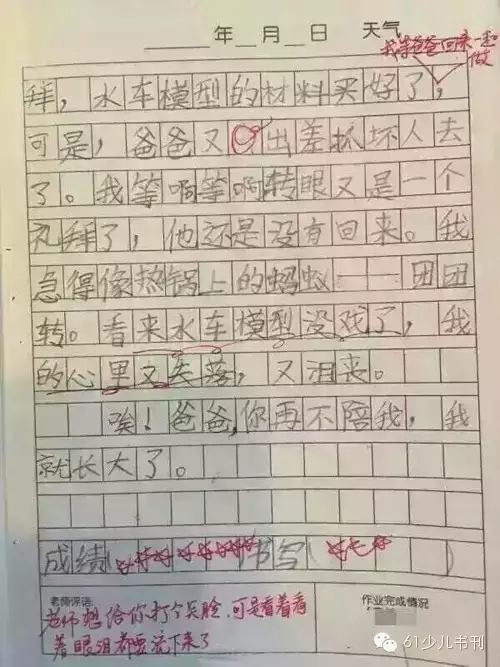 年 月 日 天气
我等爸爸回来一起做
拜，水车模型的材料买好了，
可是，爸爸又出差抓坏人去
了。我等啊等啊转眼又是一个
礼拜了，他还是没有回来。我
急得像热锅上的蚂蚁——团团
转。看来水车模型没戏了，我
的心里又失落，又沮丧。
唉！爸爸，你再不陪我，我
就长大了。
成绩（好好好好好好）书写（好好好）
老师评语：
作业完成情况
老师想给你打个笑脸，可是看着看
着眼泪都要流下来了
61少儿书刊